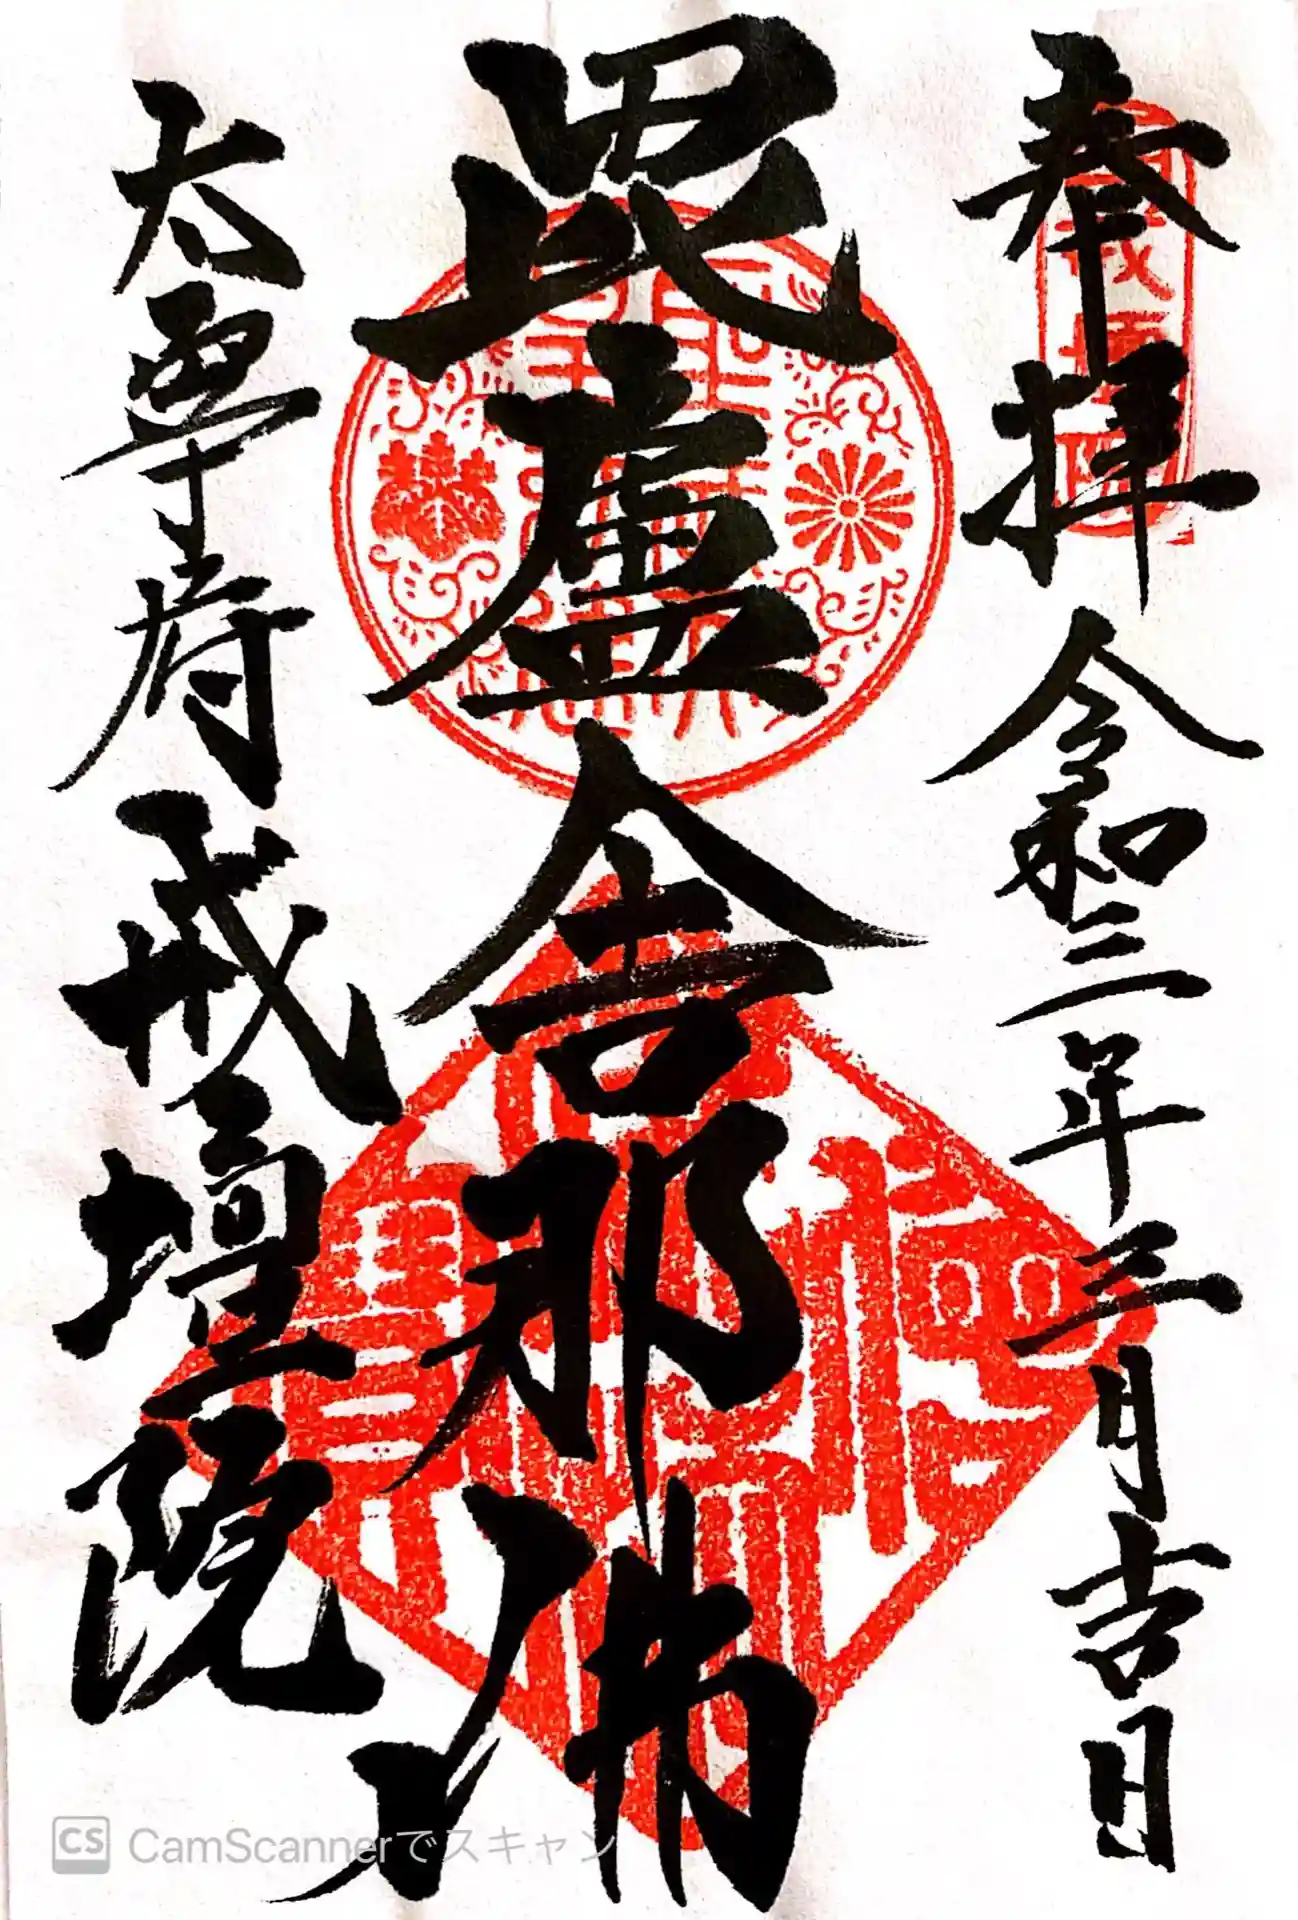 奉拜 令和三年三月吉日
毘盧舎那佛
太宰府 戒壇院
CamScannerでスキャン